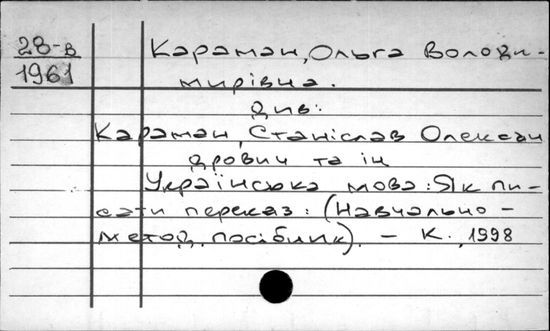 28-в
1961
Караман, Ольга Володи-
мирівна.
див:
Караман, Станіслав Олексан
дрович та ін
Українська мова: Як пи-
сати переказ: (Навчально-
метод. посібник). – К., 1998